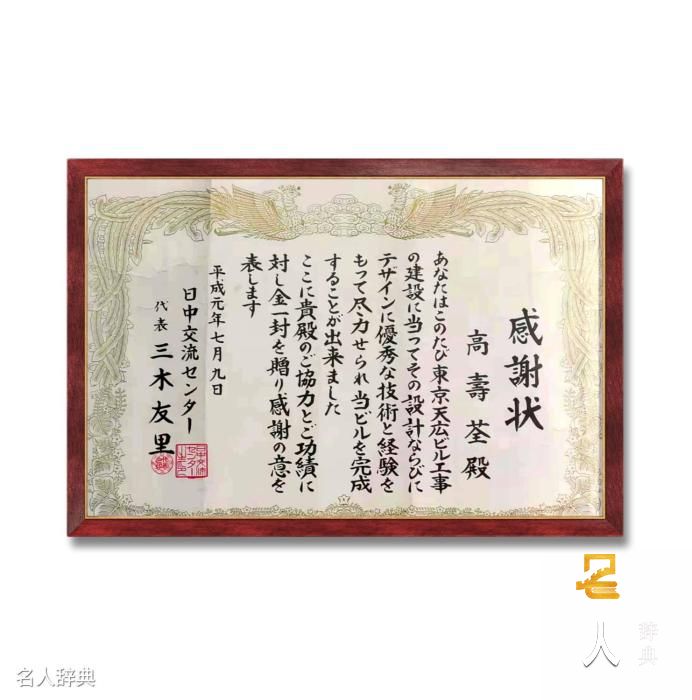 感謝状
高壽荃殿
あなたはこのたび東京天広ビル工事
の建設に当ってその設計ならびに
デザインに優秀な技術と経験を
もって尽力せられ当ビルを完成
することが出来ました
ここに貴殿のご協力とご功績に
対し金一封を贈り感謝の意を
表します
平成元年七月九日
日中交流センター
代表 三木友里
名人辞典
名人辞典